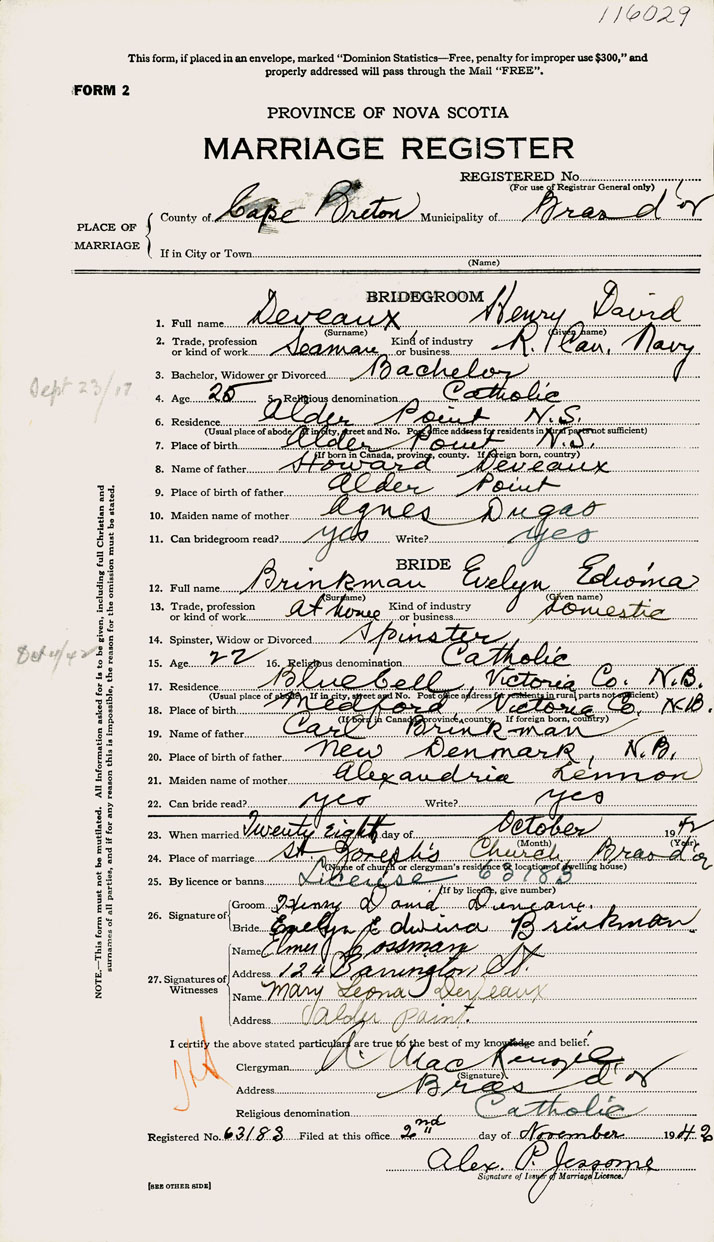 116029
This form, if placed in an envelope, marked "Dominion Statistics—Free, penalty for improper use $300," and
properly addressed will pass through the Mail "FREE".
FORM 2
PROVINCE OF NOVA SCOTIA
MARRIAGE REGISTER
REGISTERED No.
(For use of Registrar General only)
PLACE OF MARRIAGE
County of Cape Breton Municipality of Bras d'or
If in City or Town
(Name)
BRIDEGROOM
1. Full name Deveaux Henry David
(Surname) (Given name)
2. Trade, profession or kind of work Seaman Kind of industry or business R. Can. Navy
3. Bachelor, Widower or Divorced Bachelor
Sept 23/17
4. Age 25 5. Religious denomination Catholic
6. Residence Alder Point N.S.
(Usual place of abode. If in city, street and No. Post office address for residents in rural parts not sufficient)
7. Place of birth Alder Point N.S.
(If born in Canada, province, county. If foreign born, country)
8. Name of father Howard Deveaux
9. Place of birth of father Alder Point
10. Maiden name of mother Agnes Dugas
11. Can bridegroom read? yes Write? yes
BRIDE
12. Full name Brinkman Evelyn Edwina
(Surname) (Given name)
13. Trade, profession or kind of work At home Kind of industry or business Domestic
14. Spinster, Widow or Divorced Spinster
15. Age 22 16. Religious denomination Catholic
17. Residence Bluebell, Victoria Co. N.B.
(Usual place of abode. If in city, street and No. Post office address for residents in rural parts not sufficient)
18. Place of birth Medford Victoria Co. N.B.
(If born in Canada, province, county. If foreign born, country)
19. Name of father Carl Brinkman
20. Place of birth of father New Denmark, N.B.
21. Maiden name of mother Alexandria Lennon
22. Can bride read? yes Write? yes
23. When married Twenty eight day of October 1942
(Month) (Year)
24. Place of marriage St Joseph's Church Bras d'or
(Name of church or clergyman's residence or location of dwelling house)
25. By licence or banns License 63183
(If by licence, give number)
26. Signature of
Groom Henry David
Bride Evelyn Edwina Brinkman
27. Signatures of Witnesses
Name Elmer
Address 124 Barrington St.
Name Mary Leona Deveaux
Address Alder Point.
I certify the above stated particulars are true to the best of my knowledge and belief.
Clergyman A. MacKenzie
(Signature)
Address Bras d'or
Religious denomination Catholic
Registered No. 63183 Filed at this office 2nd day of November 1942
Alex. P. Jessome
Signature of Issuer of Marriage Licence.
[SEE OTHER SIDE]
NOTE.—This form must not be mutilated. All information asked for is to be given, including full Christian and
surnames of all parties, and if for any reason this is impossible, the reason for the omission must be stated.